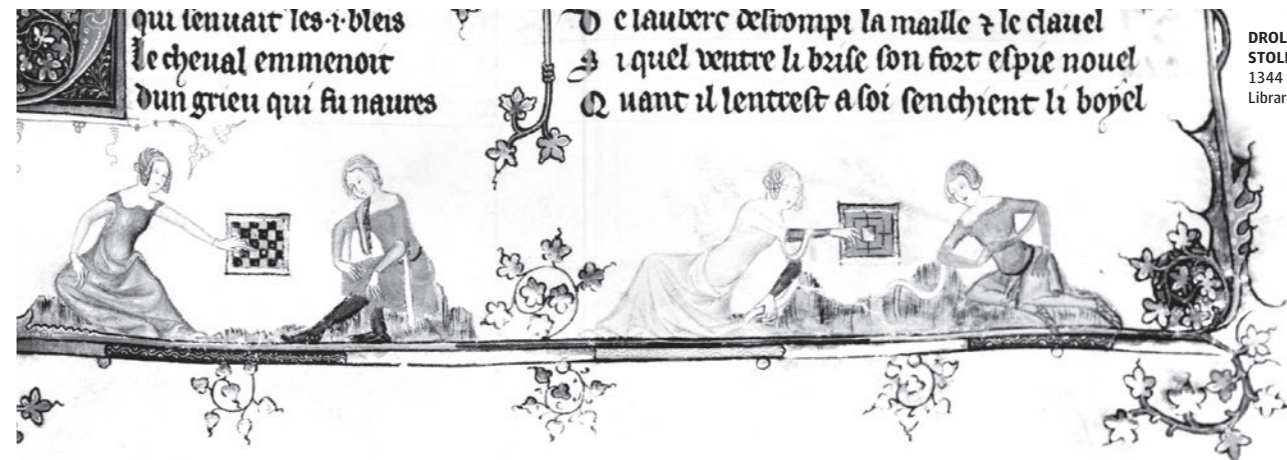 qui senuait les·i·bleis
Le cheual emmenoit
dun grieu qui fu naures
D e lauberc desrompi la maille ⁊ le clauel
S i quel ventre li brise son fort espie nouel
Q uant il lentrest a soi senchient li boyel
DROL
STOL
1344
Librar